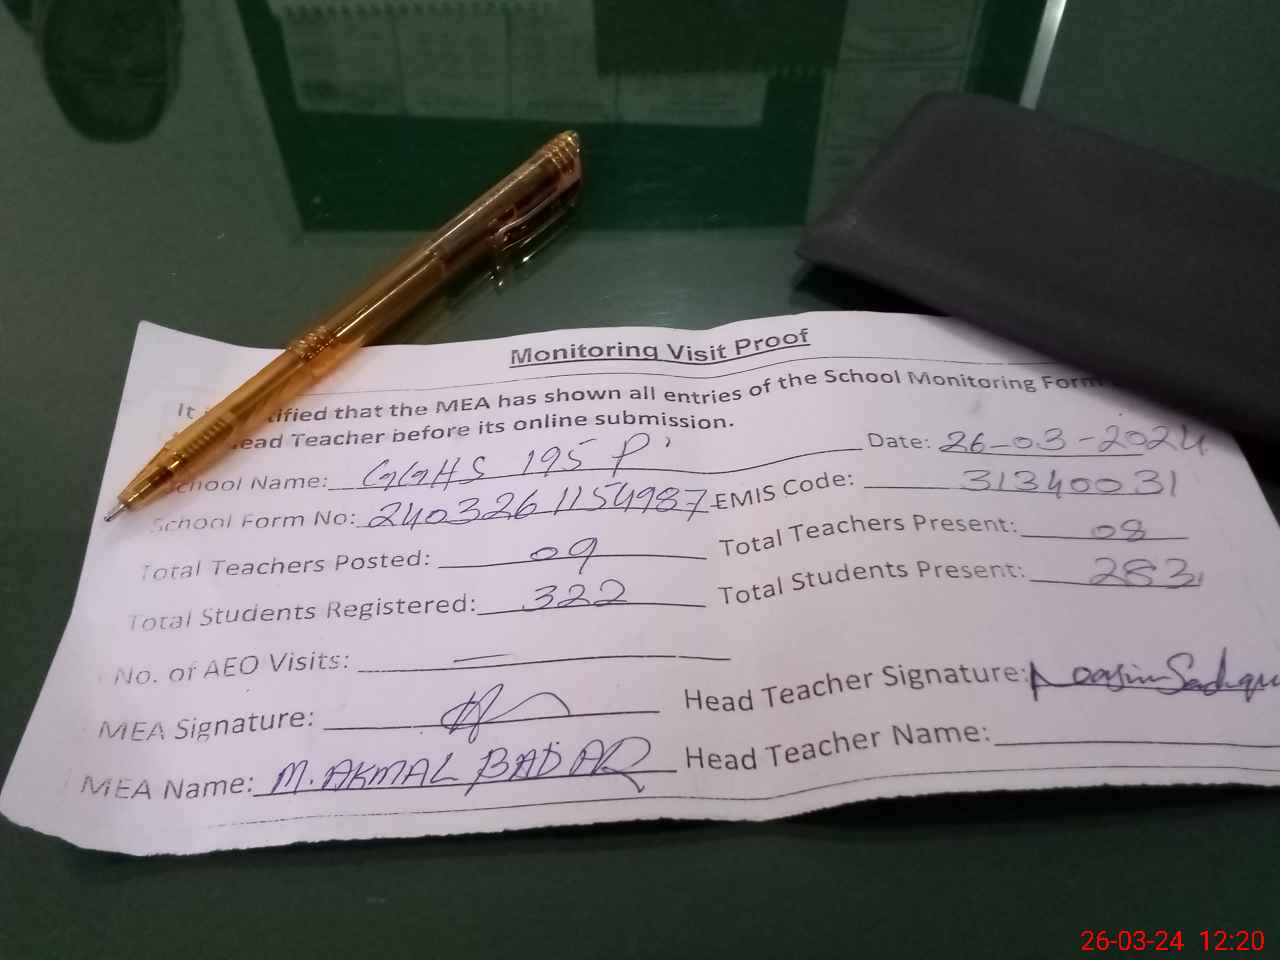 Monitoring Visit Proof
It tified that the MEA has shown all entries of the School Monitoring Form
ead Teacher before its online submission.
School Name: GGHS 195 P Date: 26-03-2024
School Form No: 2403261154987 EMIS Code: 31340031
Total Teachers Posted: 09 Total Teachers Present: 08
Total Students Registered: 322 Total Students Present: 283
No. of AEO Visits: —
MEA Signature: Head Teacher Signature:
MEA Name: M. AKMAL BADAR Head Teacher Name:
26-03-24 12:20